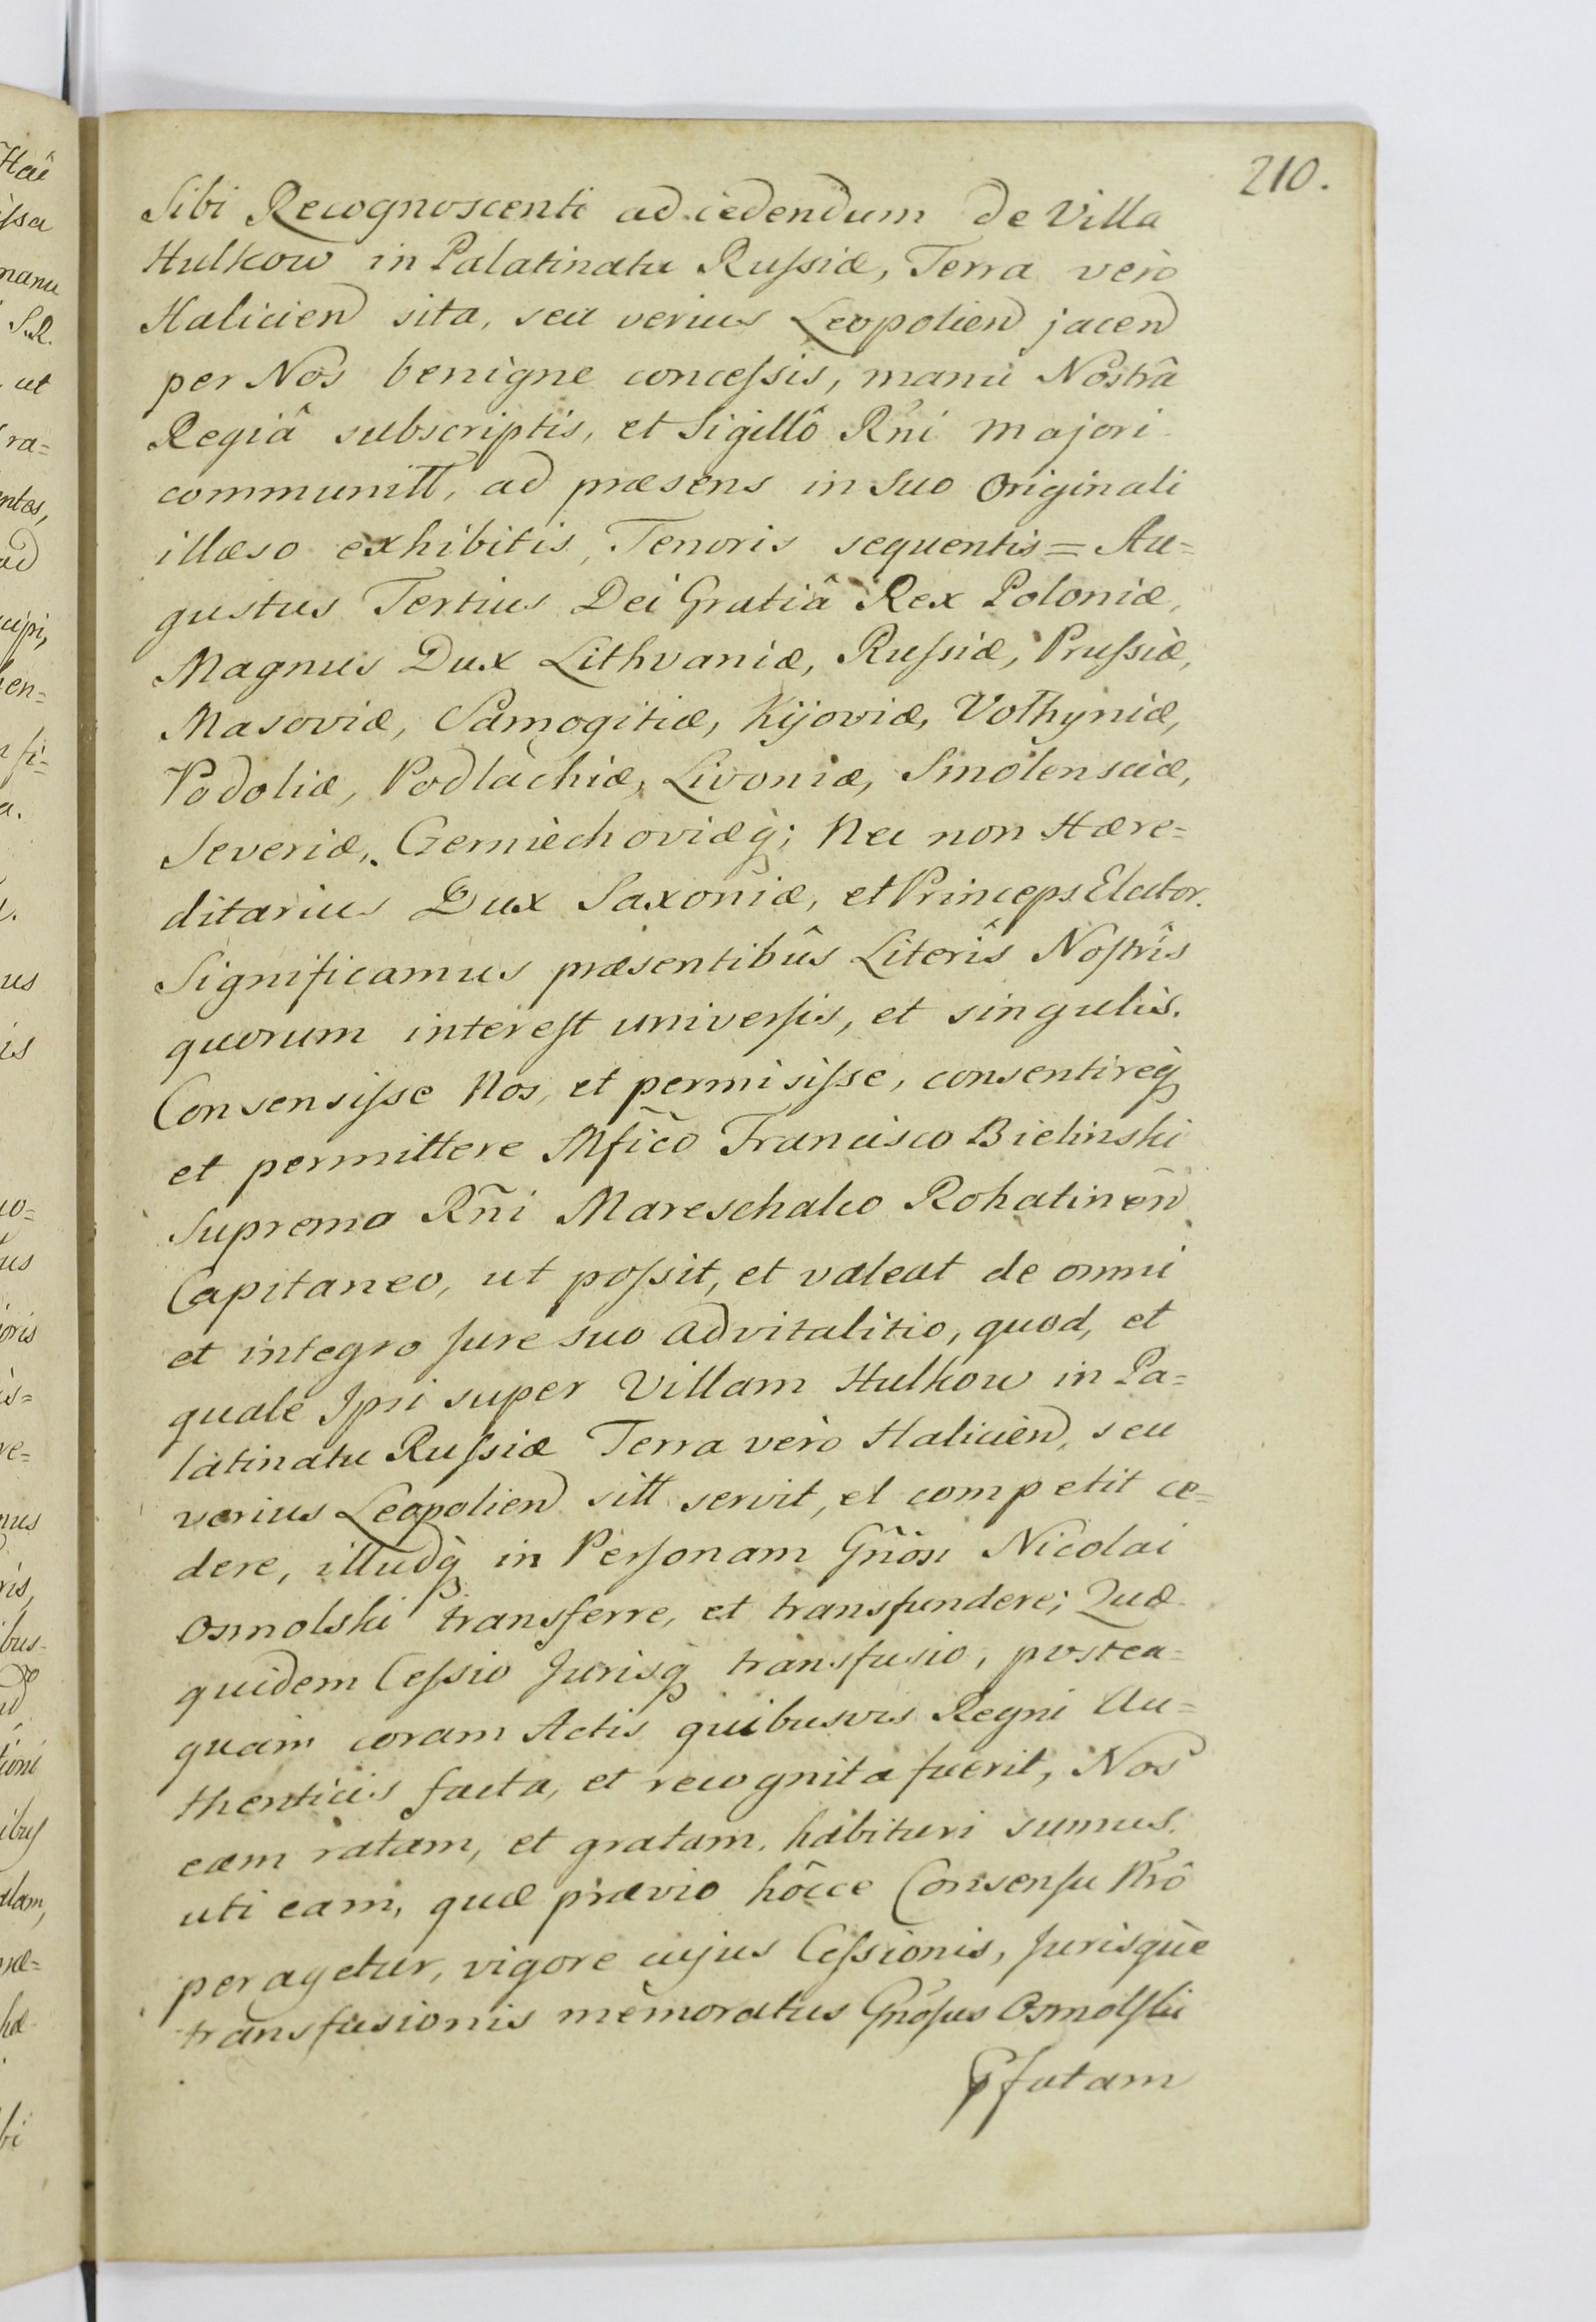 210.
Sibi Recognoscenti ad cedendum de Villa
Hulkow in Palatinatu Russiæ, Terra verò
Halicien sita, seu verius Leopolien jacen
per Nos benigne concessis, manu Nostrâ
Regiâ subscriptis, et Sigillô Rñi majori
communitt, ad præsens in suo Originali
illæso exhibitis, Tenoris sequentis = Au=
gustus Tertius Dei Gratiâ Rex Poloniæ,
Magnus Dux Lithvaniæ, Russiæ, Prussiæ,
Masoviæ, Samogitiæ, Kijoviæ, Volhyniæ,
Podoliæ, Podlachiæ, Livoniæ, Smolensciæ,
Severiæ, Czerniechoviæq; Nec non Hære=
ditarius Dux Saxoniæ, et Princeps Elector.
Significamus præsentibûs Literîs Nostrîs
quorum interest universis, et singulis.
Consensisse Nos, et permisisse, consentireq
et permittere Mfico Francisco Bielinski
Supremo Rñi Mareschalco Rohatinen
Capitaneo, ut possit, et valeat de omni
et integro Jure suo advitalitio, quod, et
quale Ipsi super Villam Hulkow in Pa=
latinatu Russiæ Terra verò Halicien, seu
verius Leopolien sitt servit, et competit ce=
dere, illudq in Personam Gñosi Nicolai
Osmolski transferre, et transfundere; Quæ
quidem Cessio Jurisq transfusio, postea=
quam coram Actis quibusvis Regni Au=
thenticis facta, et recognita fuerit, Nos
eam ratam, et gratam, habituri sumus,
uti eam, quæ prævio hôcce Consensu Nrô
peragetur, vigore cujus Cessionis, Jurisquè
transfusionis memoratus Gñosus Osmolski